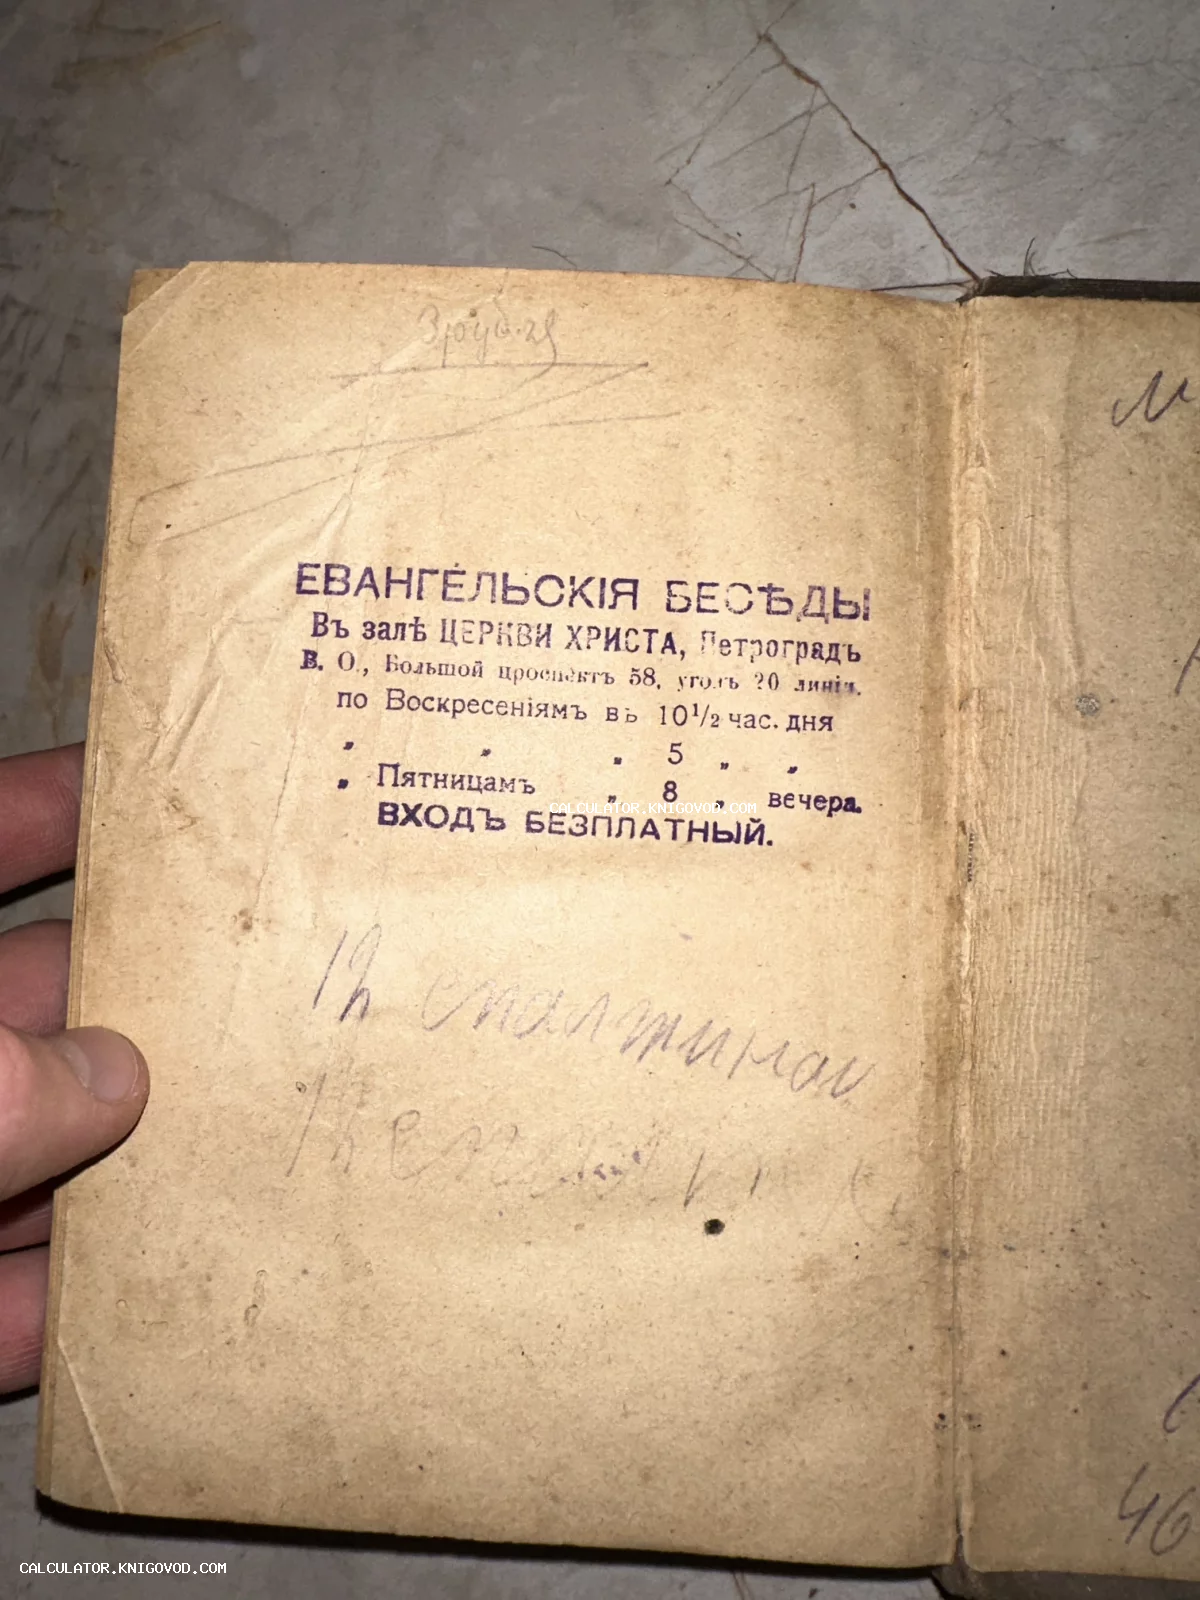 ЕВАНГЕЛЬСКІЯ БЕСѢДЫ
Въ залѣ ЦЕРКВИ ХРИСТА, Петроградъ
В. О., Большой проспектъ 58, уголъ 20 линіи.
по Воскресеніямъ въ 10½ час. дня
„ „ „ 5 „ „
„ Пятницамъ „ 8 „ вечера.
CALCULATOR.KNIGOVOD.COM
ВХОДЪ БЕЗПЛАТНЫЙ.
46
CALCULATOR.KNIGOVOD.COM